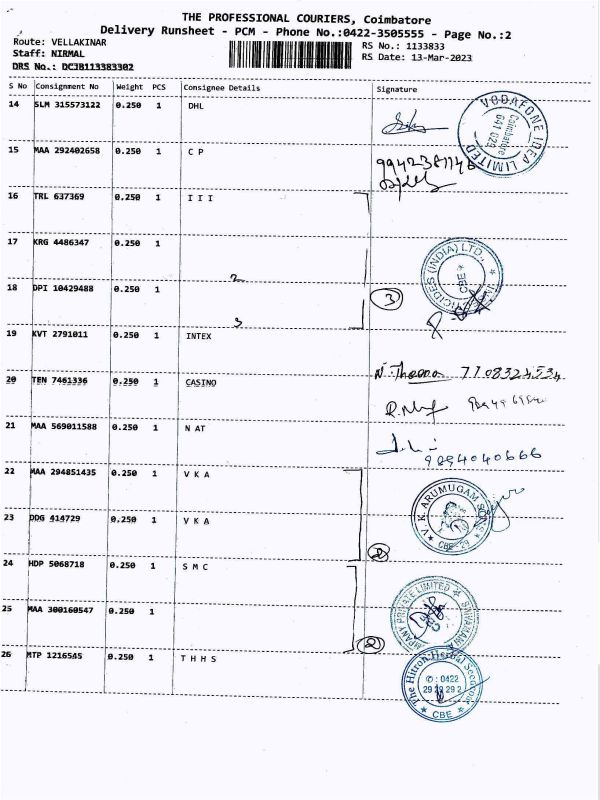 THE PROFESSIONAL COURIERS, Coimbatore
Delivery Runsheet - PCM - Phone No.:0422-3505555 - Page No.:2
Route: VELLAKINAR
Staff: NIRMAL
DRS No.: DCJB113383302
RS No.: 1133833
RS Date: 13-Mar-2023
S No Consignment No Weight PCS Consignee Details Signature
14 SLM 315573122 0.250 1 DHL
VODAFONE IDEA LIMITED
Coimbatore
641 029
15 MAA 292402658 0.250 1 C P
9942381146
16 TRL 637369 0.250 1 I I I
17 KRG 4486347 0.250 1
2
CIDES (INDIA) LTD.,
CBE
18 DPI 10429488 0.250 1
3
3
19 KVT 2791011 0.250 1 INTEX
20 TEN 7461336 0.250 1 CASINO
7708324534
21 MAA 569011588 0.250 1 N AT
9894040666
22 MAA 294851435 0.250 1 V K A
V. K. ARUMUGAM SONS
CBE-29
23 DDG 414729 0.250 1 V K A
2
24 HDP 5068718 0.250 1 S M C
PANY PRIVATE LIMITED
25 MAA 300160547 0.250 1
2
26 MTP 1216545 0.250 1 T H H S
The Hitron Herbal
✆ : 0422
29 29 29 2
CBE